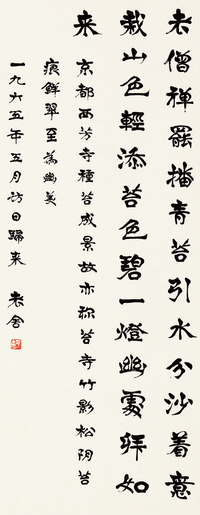 老僧禅罷播青苔引水分沙着意
栽山色輕添苔色碧一燈幽處拜如
来
京都西芳寺種苔成景故亦称苔寺竹影松阴苔
痕鲜翠至為幽美
一九六五年五月訪日歸来 老舍